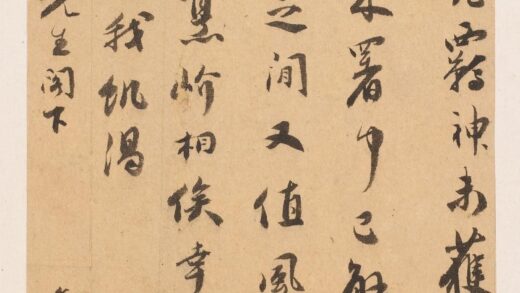 神未獲
署中已解
之間又值風
岕相俟幸
我飢渴
先生閣下